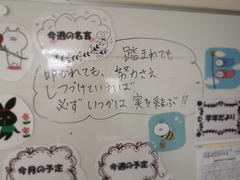 今週の名言
踏まれても
叩かれても、努力さえ
しつづけていれば
必ずいつかは 実を結ぶ!!
今月の予定
今週の予定